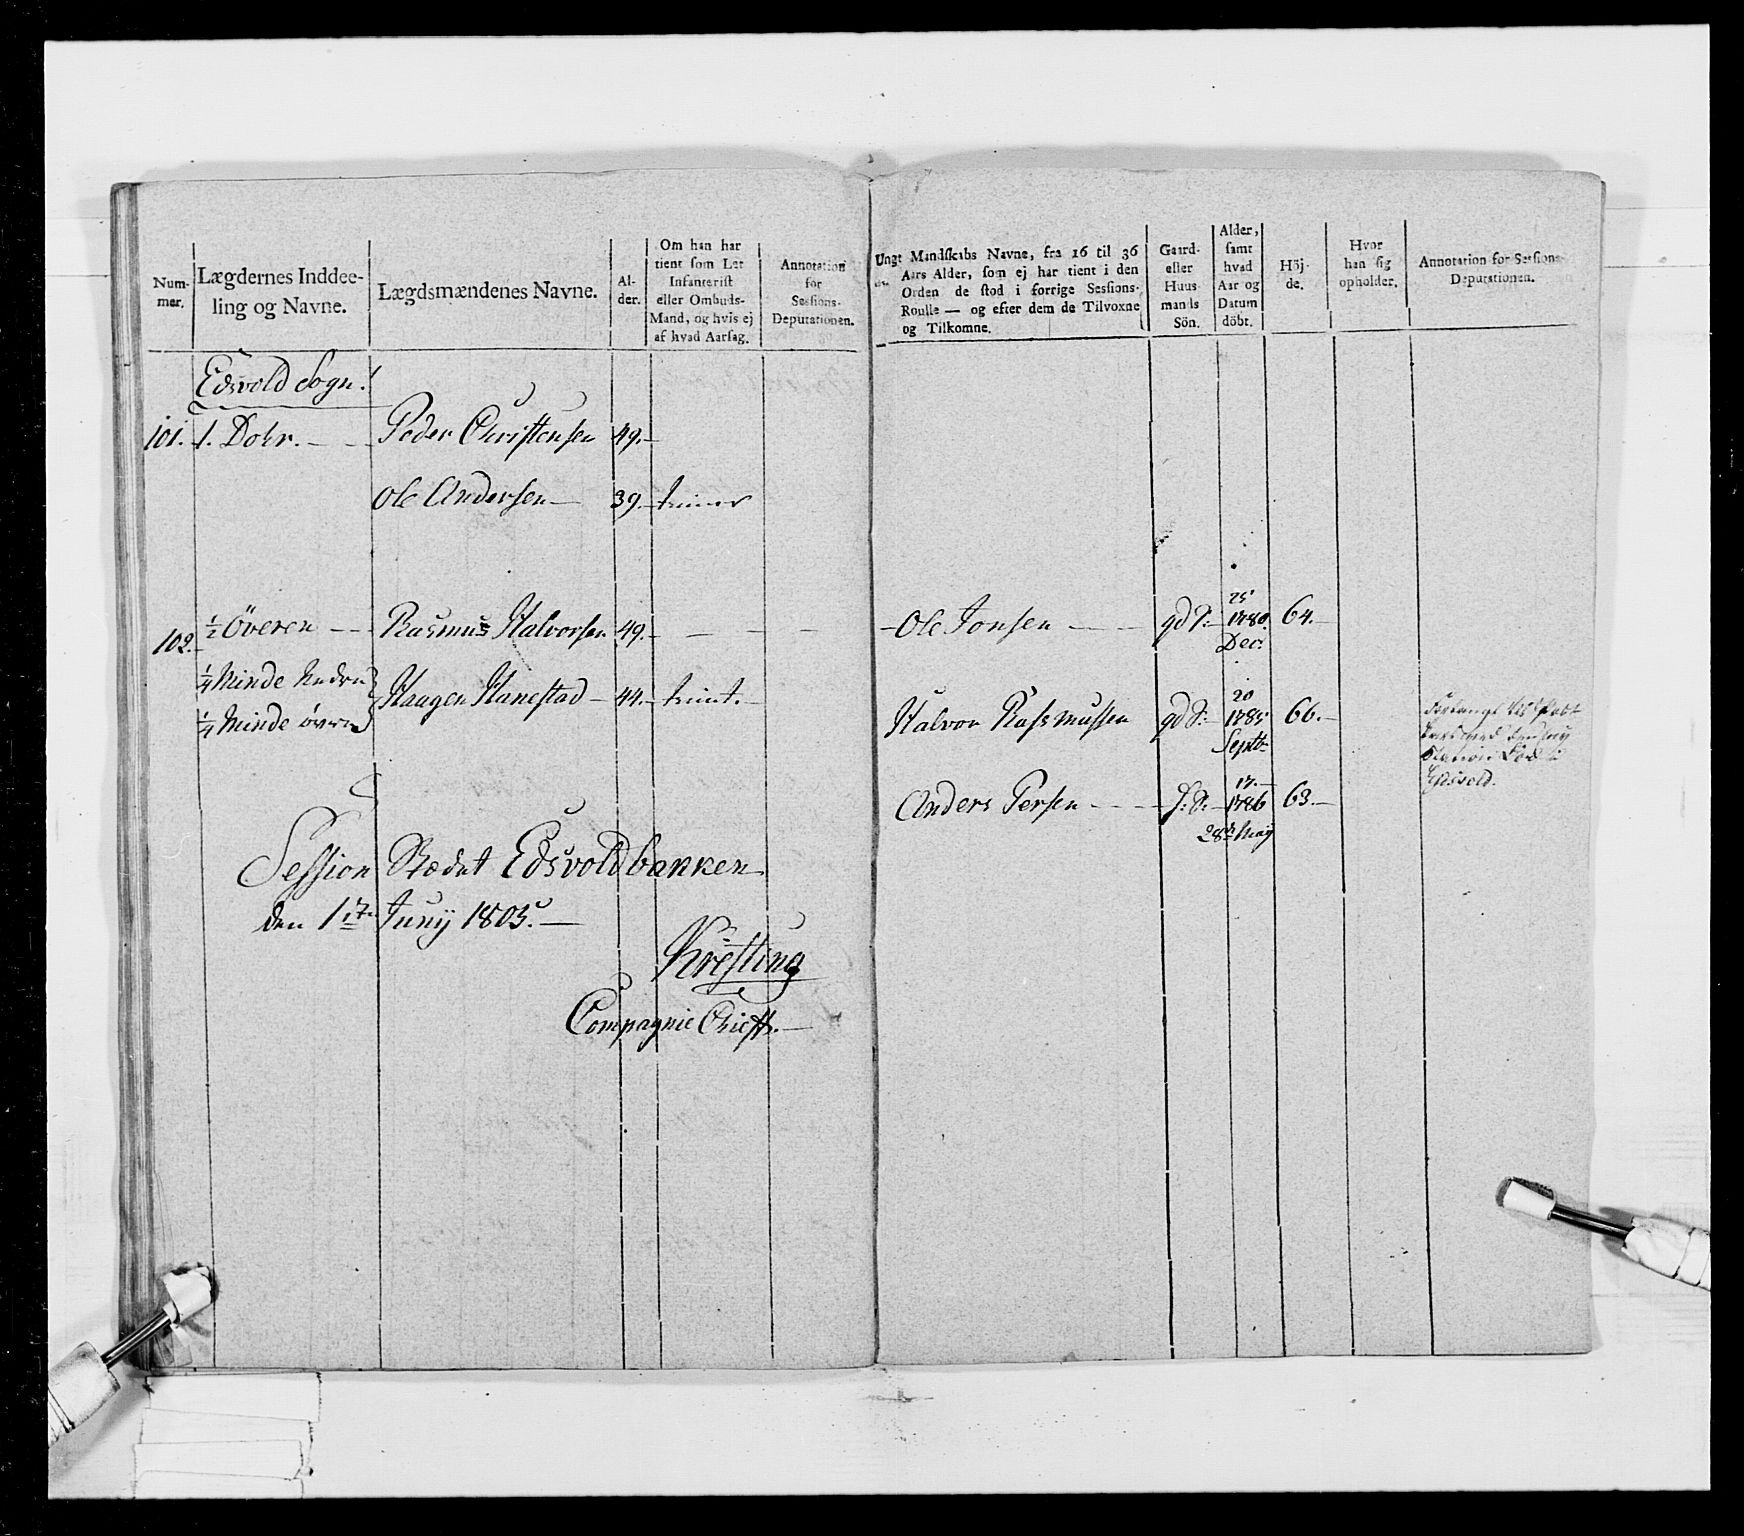 Num-
mer.
Lægdernes Inddee-
ling og Navne.
Lægdsmændenes Navne.
Al-
der.
Om han har
tient som Let
Infanterist
eller Ombuds-
Mand, og hvis ej
af hvad Aarsag.
Annotation
for
Sessions-
Deputationen.
Ungt Mandskabs Navne, fra 16 til 36
Aars Alder, som ej har tient i den
Orden de stod i forrige Sessions-
Roulle — og efter dem de Tilvoxne
og Tilkomne.
Gaard-
eller
Huus-
mands
Sön.
Alder,
samt
hvad
Aar og
Datum
döbt.
Höj-
de.
Hvor
han sig
opholder.
Annotation for Sessions-
Deputationen.
Edsvold Sogn!
101. 1. Dohr. — Peder Christensen 49.—
Ole Andersen — 39.—
102. 1/2 Överen — Rasmus Halvorsen 49.— — —
1/4 Minde Nedre
1/4 Minde övern Haagen Hanestad — 44.— tient.—
— Ole Jonsen — gd S:— 25 1780. Dec: 64.—
Halvor Rassmussen gd S:— 20 1785 Septbr 66.—
Anders Persen — S:— 17.— 1786 28de May 63.—
Edsvold.
Session Stædet Edsvoldbakken
den 17de Junij 1803.—
Kresting
Compagnie Chieff.—